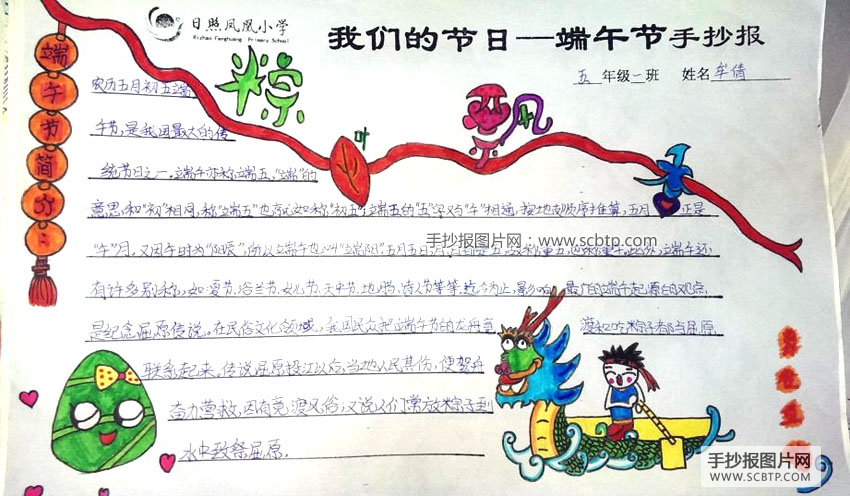 日照凤凰小学
Rizhao Fenghuang Primary School
我们的节日—端午节手抄报
五年级一班 姓名牟倩
端午节简介：
粽
叶
飘
农历五月初五端
午节，是我国最大的传
统节日之一，端午亦称端五，"端"的
意思和"初"相同，称"端五"也就如称"初五"；端五的"五"字又与"午"相通，按地支顺序推算，五月正是
"午"月，又因午时为"阳辰"，所以端午也叫"端阳"五月五日，月
有许多别称，如：夏节、浴兰节、女儿节、天中节、地腊、诗人节等等，迄今为止，影响最广的端午起源的观点
是纪念屈原传说。在民俗文化领域，我国民众把端午节的龙舟竞渡和吃粽子都与屈原
联系起来，传说屈原投江以后，当地人民其伤，便驾舟
奋力营救，因有竞渡风俗；又说人们常放粽子到
水中致祭屈原．
手抄报图片网：www.scbtp.com
手抄报图片网
WWW.SCBTP.COM